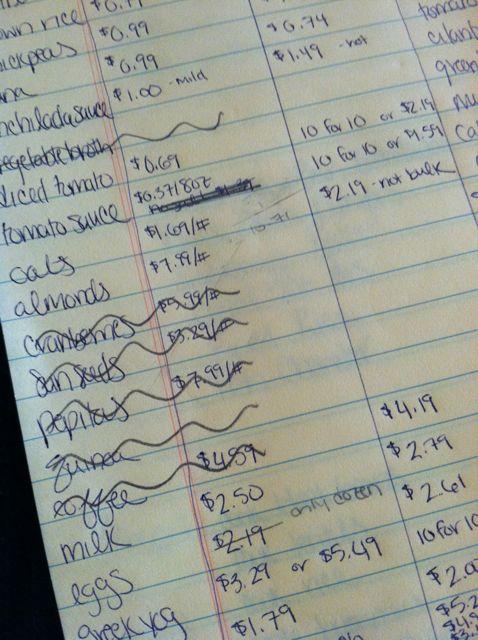 own rice $0.99 $0.74
chickpeas $0.99 $1.49 - not
$1.00 - mild
enchilada sauce
vegetable broth 10 for 10 or $2.19
diced tomato $0.69 10 for 10 or 4.59
tomato sauce $0.37/8oz $2.19 - not bulk
oats $1.69/#
almonds $7.99/#
cranberries $5.99/#
sun seeds $3.29/#
pepitas $7.99/#
quinoa
coffee $4.59 $4.19
milk $2.50 $2.79
eggs $2.19 only dozen $2.61
greek yog $3.29 or $5.49 10 for 10
$1.79
tomato
cilant
green